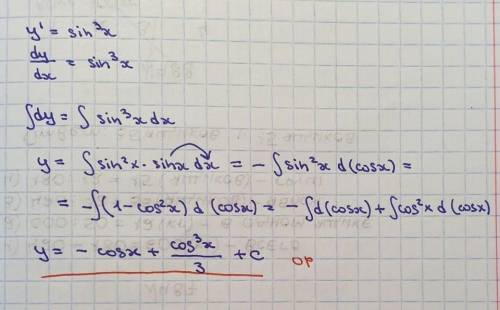 y' = sin³x
dy/dx = sin³x
∫dy = ∫ sin³x dx
y = ∫ sin²x · sinx dx = - ∫ sin²x d(cosx) =
= -∫(1-cos²x) d (cosx) = - ∫d(cosx) + ∫cos²x d(cosx)
y = - cosx + cos³x/3 + c
ор